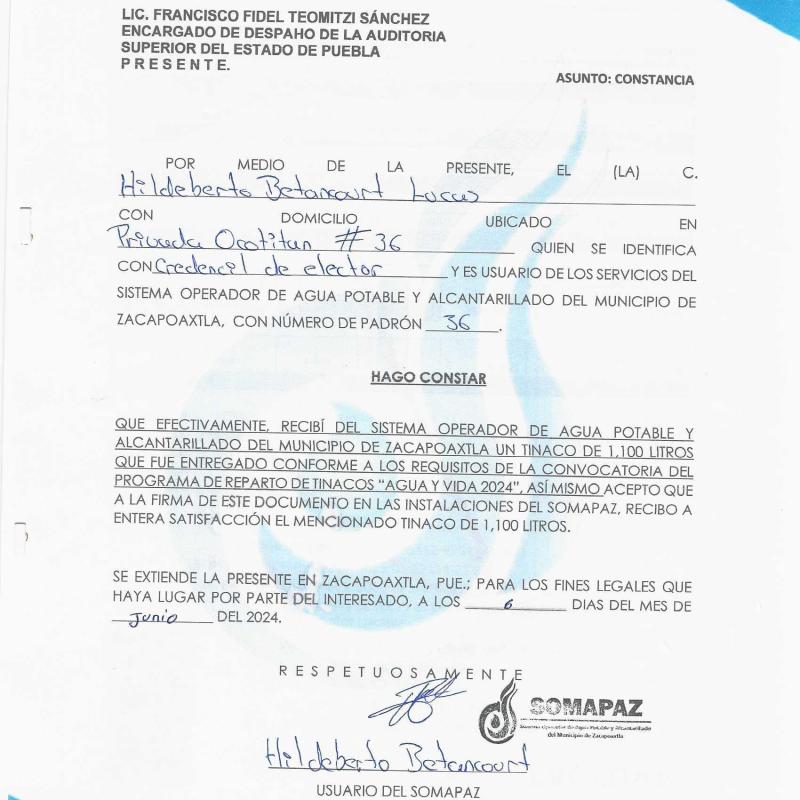 LIC. FRANCISCO FIDEL TEOMITZI SÁNCHEZ
ENCARGADO DE DESPAHO DE LA AUDITORIA
SUPERIOR DEL ESTADO DE PUEBLA
P R E S E N T E.
ASUNTO: CONSTANCIA
POR MEDIO DE LA PRESENTE, EL (LA) C.
Hildeberto Betancourt Lucas
CON DOMICILIO UBICADO EN
Privada Ocotitan # 36 QUIEN SE IDENTIFICA
CON Credencil de elector Y ES USUARIO DE LOS SERVICIOS DEL
SISTEMA OPERADOR DE AGUA POTABLE Y ALCANTARILLADO DEL MUNICIPIO DE
ZACAPOAXTLA, CON NÚMERO DE PADRÓN 36.
HAGO CONSTAR
QUE EFECTIVAMENTE, RECIBÍ DEL SISTEMA OPERADOR DE AGUA POTABLE Y
ALCANTARILLADO DEL MUNICIPIO DE ZACAPOAXTLA UN TINACO DE 1,100 LITROS
QUE FUE ENTREGADO CONFORME A LOS REQUISITOS DE LA CONVOCATORIA DEL
PROGRAMA DE REPARTO DE TINACOS “AGUA Y VIDA 2024”, ASÍ MISMO ACEPTO QUE
A LA FIRMA DE ESTE DOCUMENTO EN LAS INSTALACIONES DEL SOMAPAZ, RECIBO A
ENTERA SATISFACCIÓN EL MENCIONADO TINACO DE 1,100 LITROS.
SE EXTIENDE LA PRESENTE EN ZACAPOAXTLA, PUE.; PARA LOS FINES LEGALES QUE
HAYA LUGAR POR PARTE DEL INTERESADO, A LOS 6 DIAS DEL MES DE
Junio DEL 2024.
R E S P E T U O S A M E N T E
SOMAPAZ
Sistema Operador de Agua Potable y Alcantarillado
del Municipio de Zacapoaxtla
Hildeberto Betancourt
USUARIO DEL SOMAPAZ